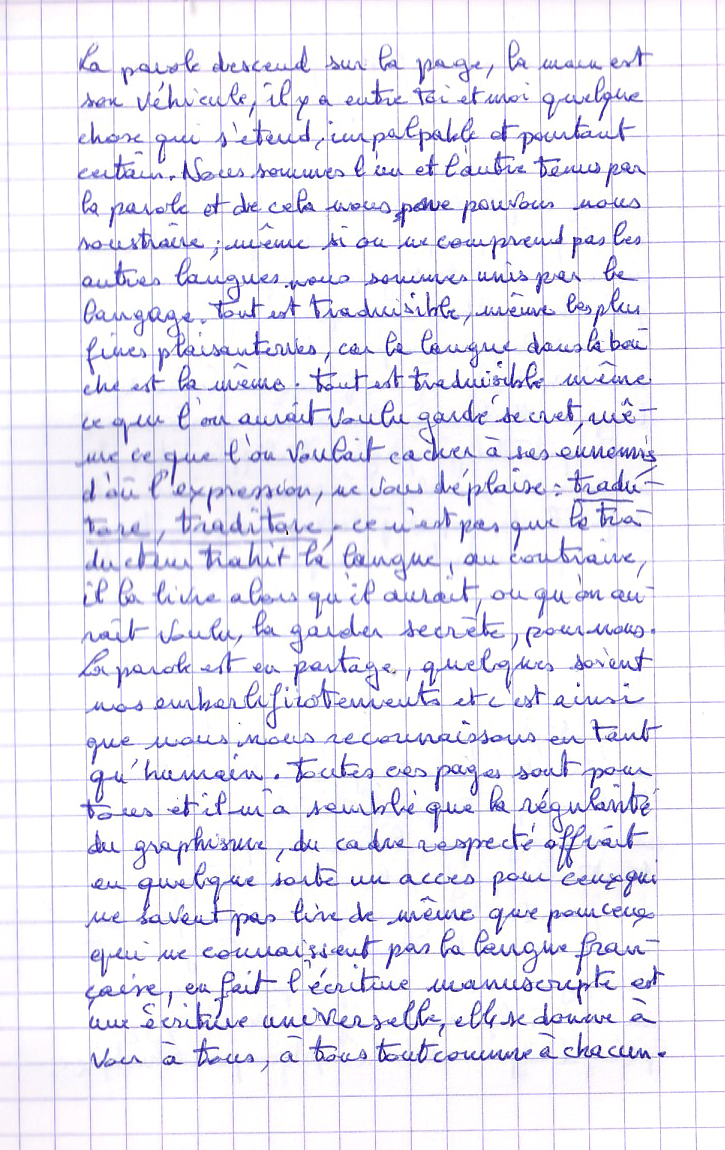 La parole descend sur la page, la main est
son véhicule, il y a entre toi et moi quelque
chose qui s'étend, impalpable et pourtant
certain. Nous sommes l'un et l'autre tenus par
la parole et de cela nous ne pouvons nous
soustraire ; même si on ne comprend pas les
autres langues nous sommes unis par le
langage. tout est traduisible, même les plus
fines plaisanteries, car la langue dans la bou
che est la même. tout est traduisible même
ce que l'on aurait voulu garder secret, mê-
me ce que l'on voulait cacher à ses ennemis
d'où l'expression, ne vous déplaise : tradu-
tore, traditore, ce n'est pas que le tra
ducteur trahit la langue, au contraire,
il la livre alors qu'il aurait, ou qu'on au-
rait voulu, la garder secrète, pour nous.
La parole est en partage, quelques soient
nos emberlificotements et c'est ainsi
que nous nous reconnaissons en tant
qu'humain. toutes ces pages sont pour
tous et il m'a semblé que la régularité
du graphisme, du cadre respecté offrait
en quelque sorte un accès pour ceux qui
ne savent pas lire de même que pour ceux
qui ne connaissent pas la langue fran-
çaise, en fait l'écriture manuscripte est
une écriture universelle, elle se donne à
voir à tous, à tous tout comme à chacun.